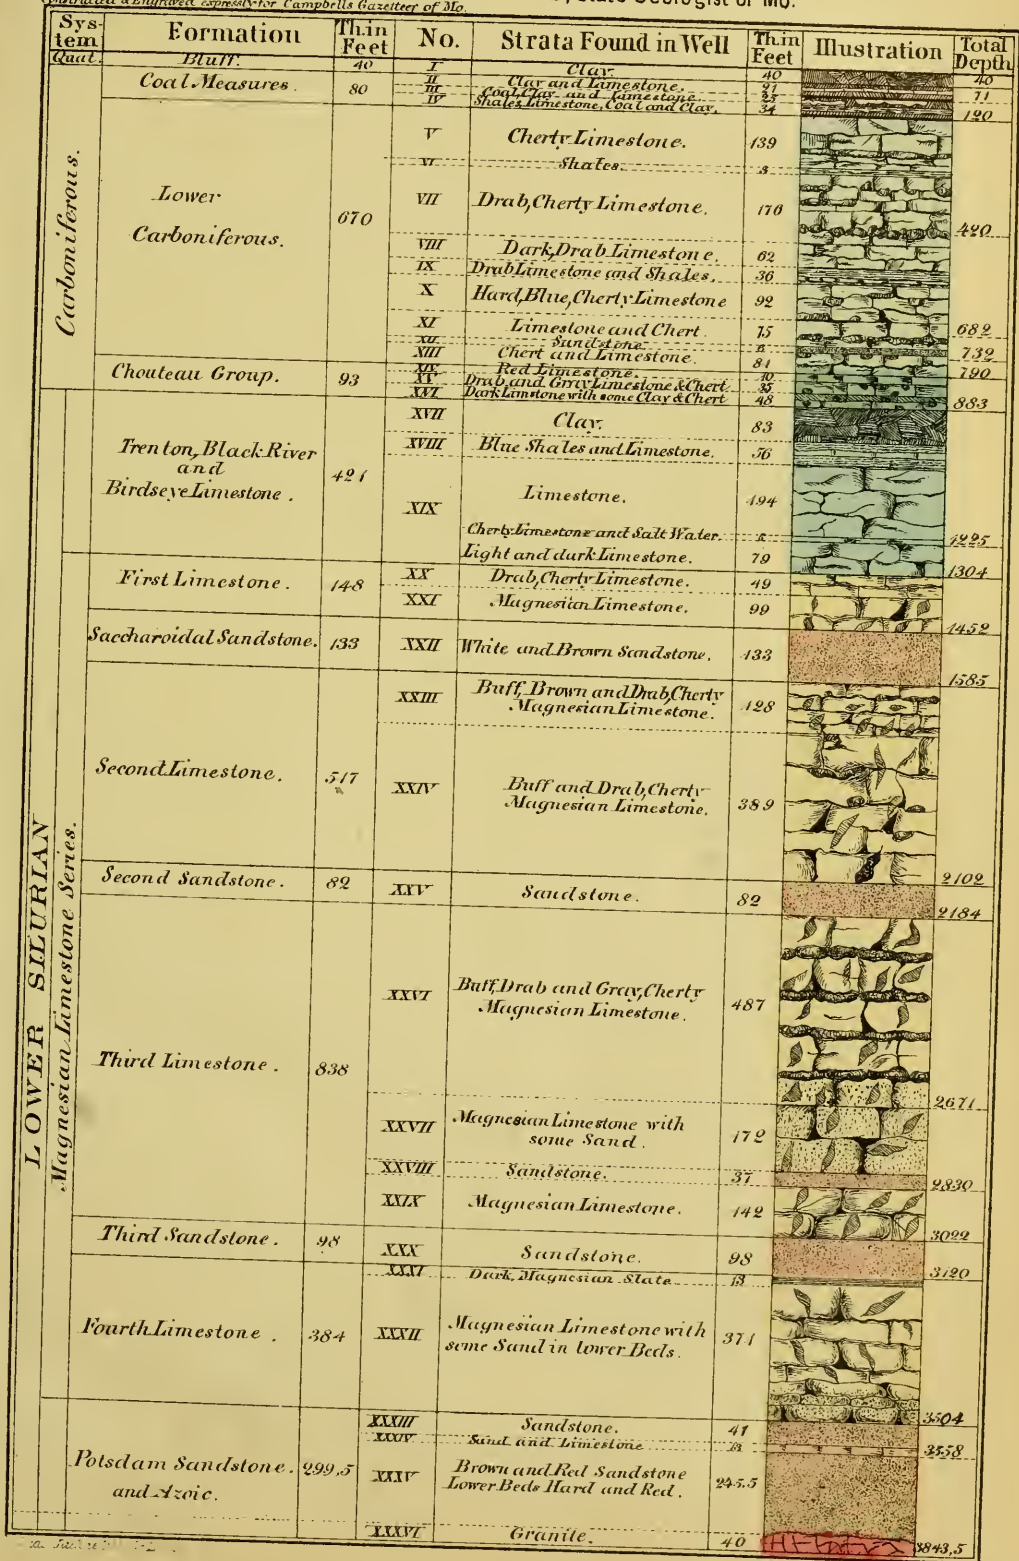 Constructed & Engraved expressly for Campbells Gazetteer of Mo.
State Geologist of Mo.
System Formation Th.in Feet No. Strata Found in Well Th.in Feet Illustration Total Depth
Quat. Bluff. 40 I Clay. 40 40
Carboniferous.
Coal Measures. 80 II Clay and Limestone. 21
III Coal, Clay and Limestone 25 71
IV Shales, Limestone, Coal and Clay. 34 120
Lower Carboniferous. 670
V Cherty Limestone. 139
VI Shales.
VII Drab, Cherty Limestone. 176 420
VIII Dark, Drab Limestone. 62
IX Drab Limestone and Shales. 36
X Hard, Blue, Cherty Limestone 92
XI Limestone and Chert. 75 682
XII Sandstone 732
XIII Chert and Limestone. 81 790
Chouteau Group. 93
XIV Red Limestone. 10
XV Drab and Gray Limestone & Chert. 35
XVI Dark Limstone with some Clay & Chert 48 883
LOWER SILURIAN
Trenton, Black River and Birdseye Limestone. 421
XVII Clay. 83
XVIII Blue Shales and Limestone. 56
XIX Limestone. 194
Cherty Limestone and Salt Water. 1225
Light and dark Limestone. 79 1304
Magnesian Limestone Series.
First Limestone. 148 XX Drab, Cherty Limestone. 49
XXI Magnesian Limestone. 99 1452
Saccharoidal Sandstone. 133 XXII White and Brown Sandstone. 133 1585
Second Limestone. 517
XXIII Buff, Brown and Drab, Cherty Magnesian Limestone. 128
XXIV Buff and Drab, Cherty Magnesian Limestone. 389 2102
Second Sandstone. 82 XXV Sandstone. 82 2184
Third Limestone. 838
XXVI Buff, Drab and Gray, Cherty Magnesian Limestone. 487 2671
XXVII Magnesian Limestone with some Sand. 172
XXVIII Sandstone. 37 2830
XXIX Magnesian Limestone. 142 3022
Third Sandstone. 98 XXX Sandstone. 98 3120
Fourth Limestone. 384
XXXI Dark, Magnesian Slate 13
XXXII Magnesian Limestone with some Sand in lower Beds. 371 3504
Potsdam Sandstone. and Azoic. 299,5
XXXIII Sandstone. 41
XXXIV Sand and Limestone 13 3558
XXXV Brown and Red Sandstone Lower Beds Hard and Red. 245.5
XXXVI Granite. 40 3843,5